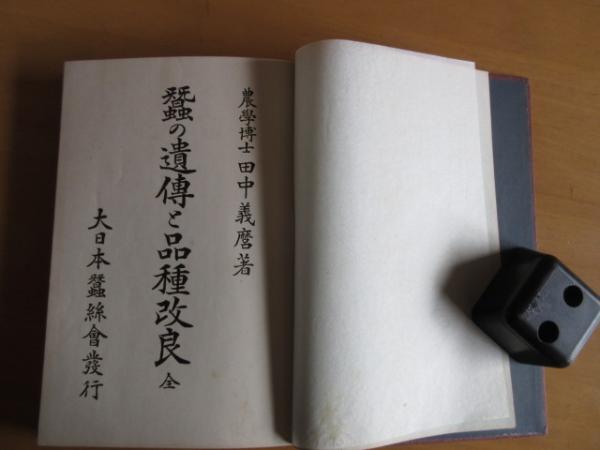 農學博士 田中義麿著
蠶の遺傳と品種改良 全
大日本蠶絲會發行